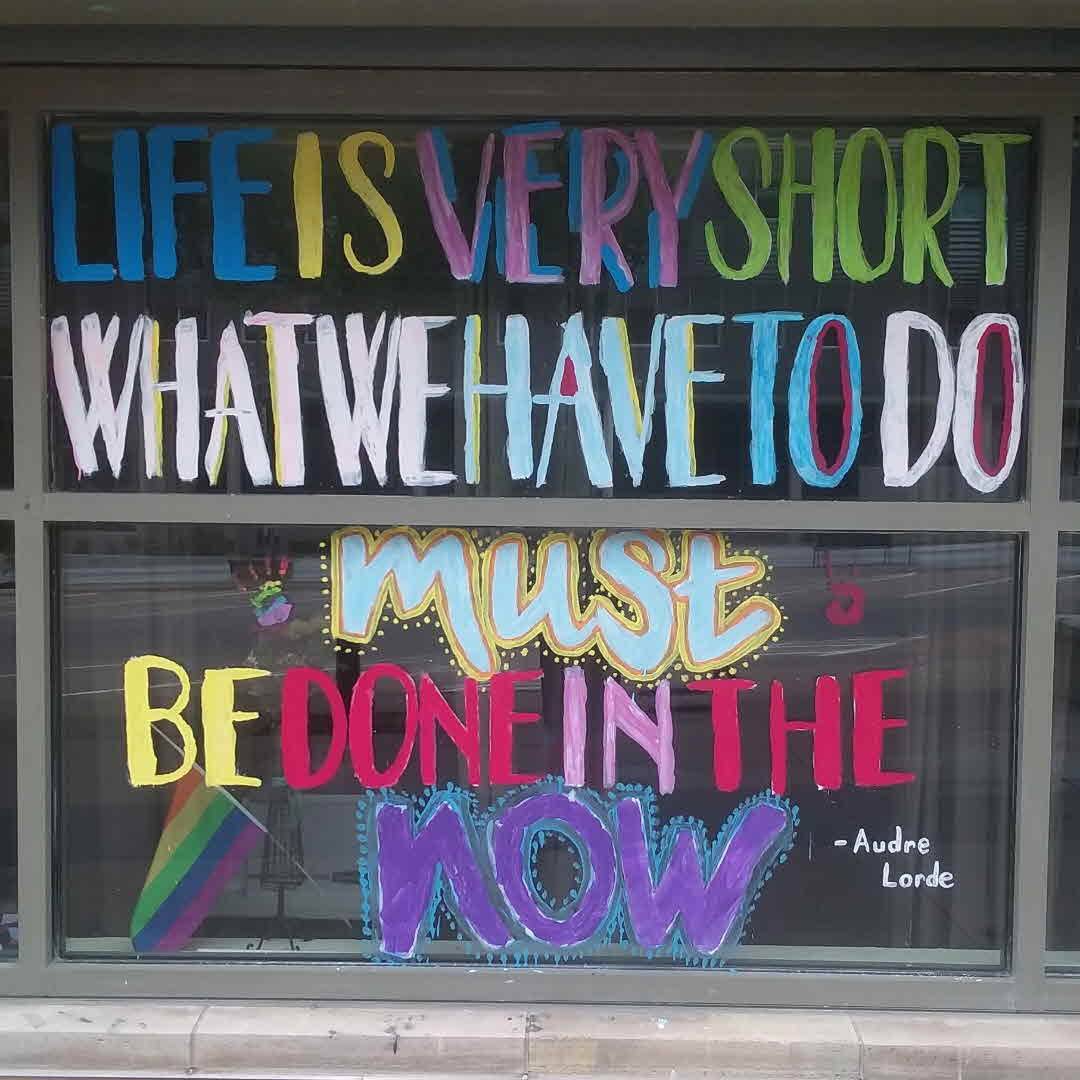 LIFE IS VERY SHORT
WHAT WE HAVE TO DO
must
BE DONE IN THE
NOW
-Audre
Lorde